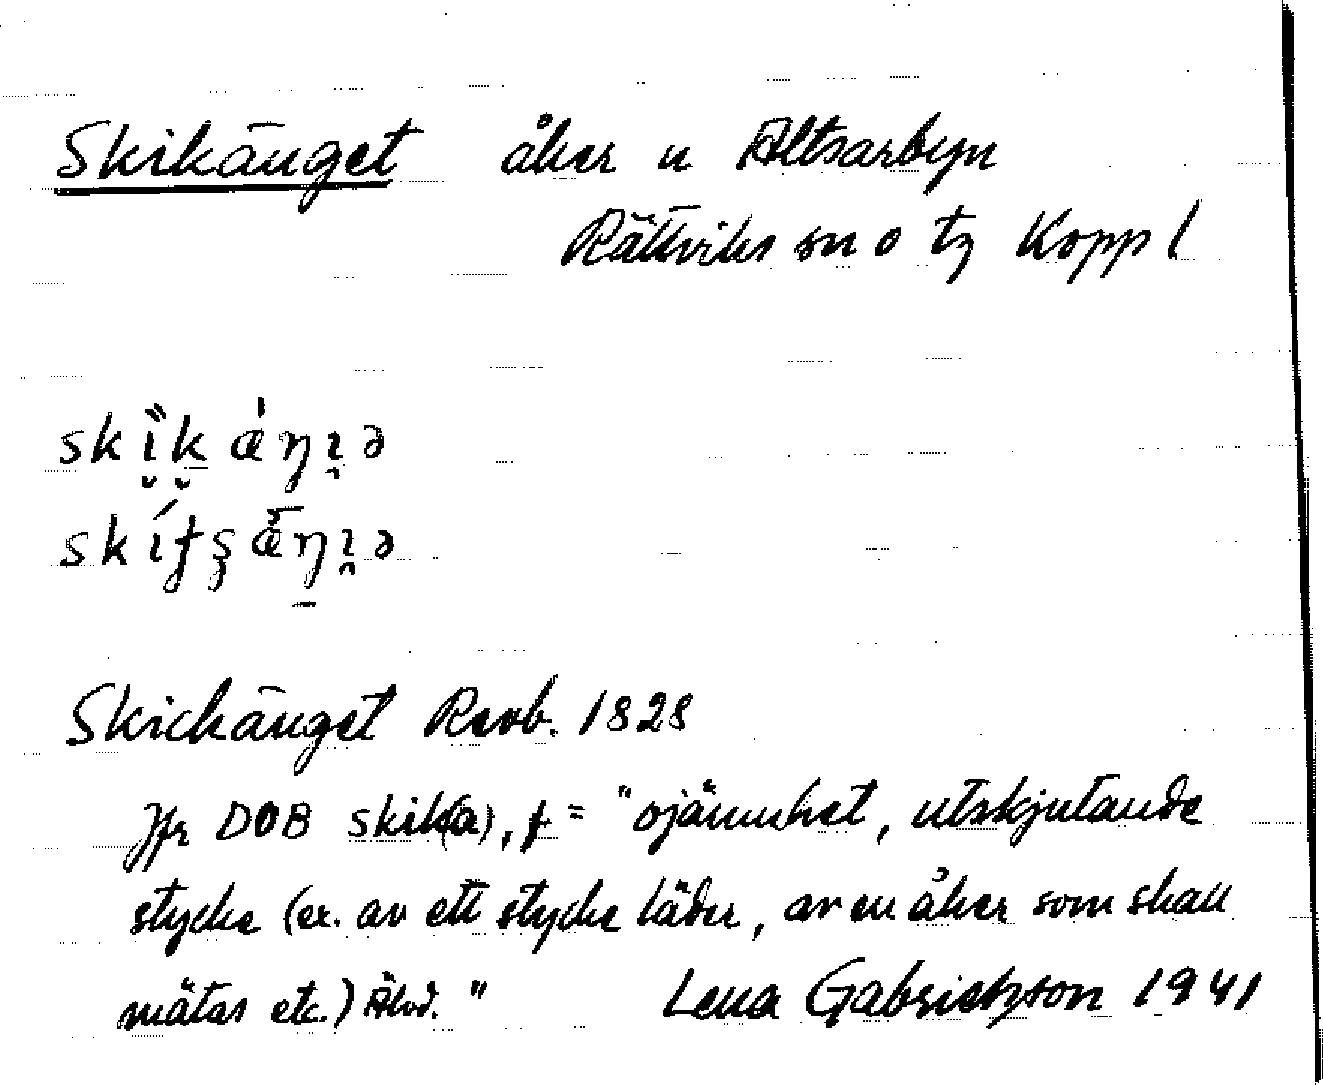 Skikänget åker u Altsarbyn
Rättviks sn o tg Kopp l
Skickänget Revb. 1828
Jfr DOB skik(a), f = "ojämnhet, utskjutande
stycke (ex. av ett stycke läder, av en åker som skall
mätas etc.) Älvd."
Lena Gabrielsson 1941